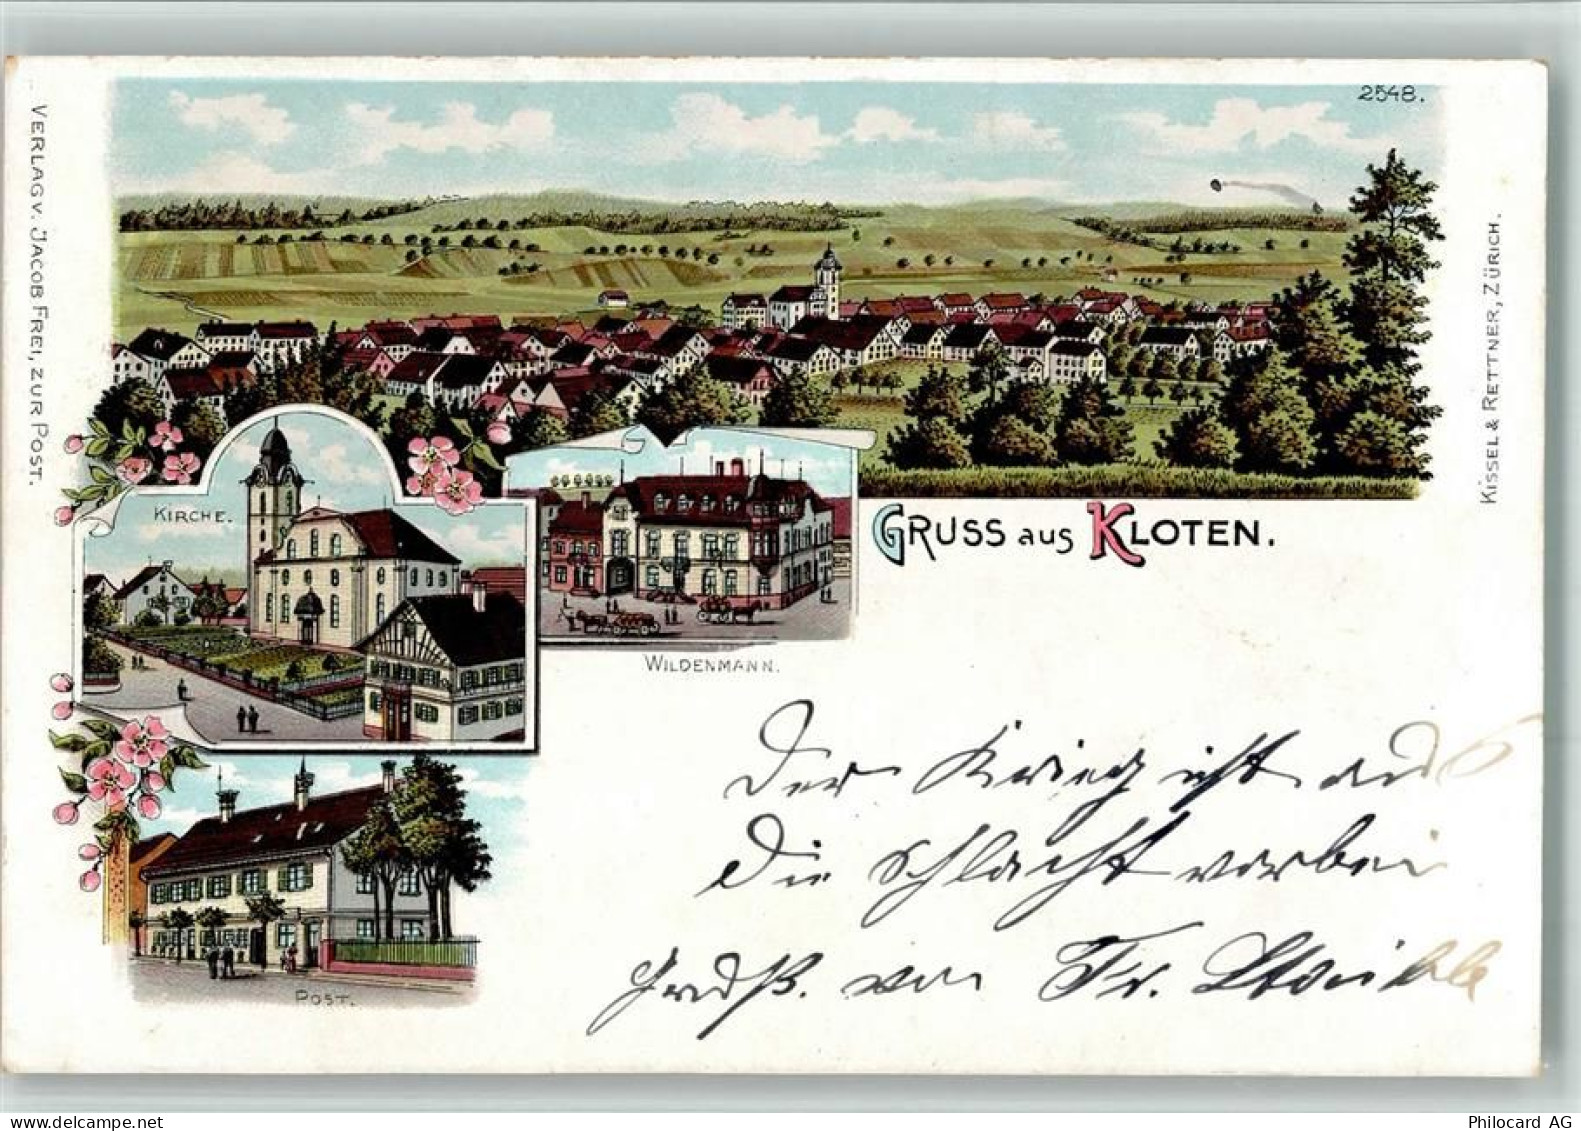 2548.
VERLAG v. JACOB FREI, ZUR POST.
KISSEL & RETTNER, ZÜRICH.
KIRCHE.
WILDENMANN.
GRUSS aus KLOTEN.
POST.
Der Krieg ist aus
Die Schlacht vorbei
Gruß. von Fr.
www.delcampe.net
mcdi
Philocard AG